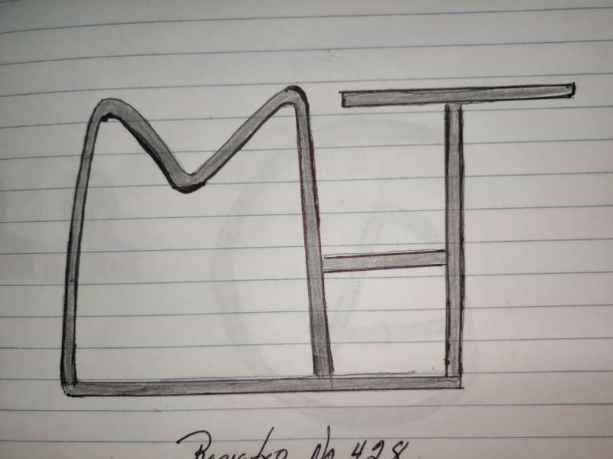 MHT
Registro No 428